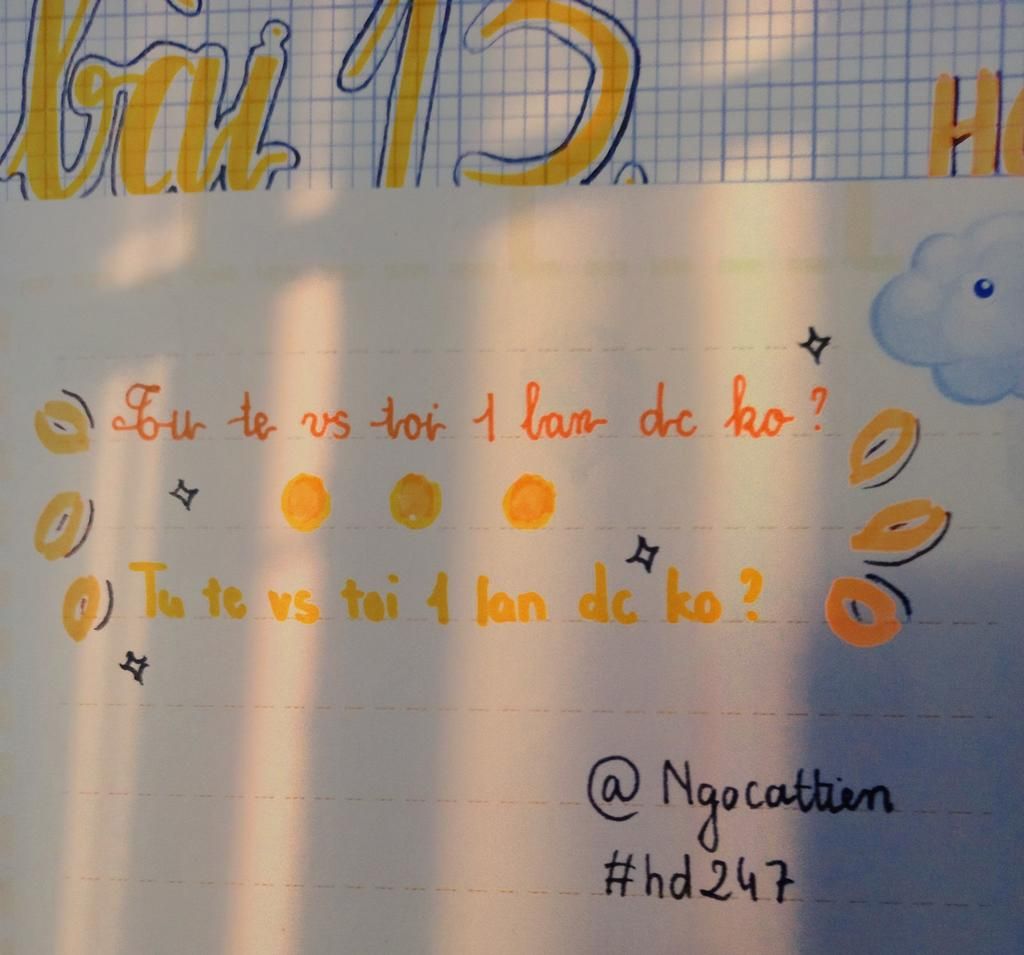 bài 15.
Tu te vs toi 1 lan dc ko?
Tu te vs toi 1 lan dc ko?
@Ngocattien
#hd247